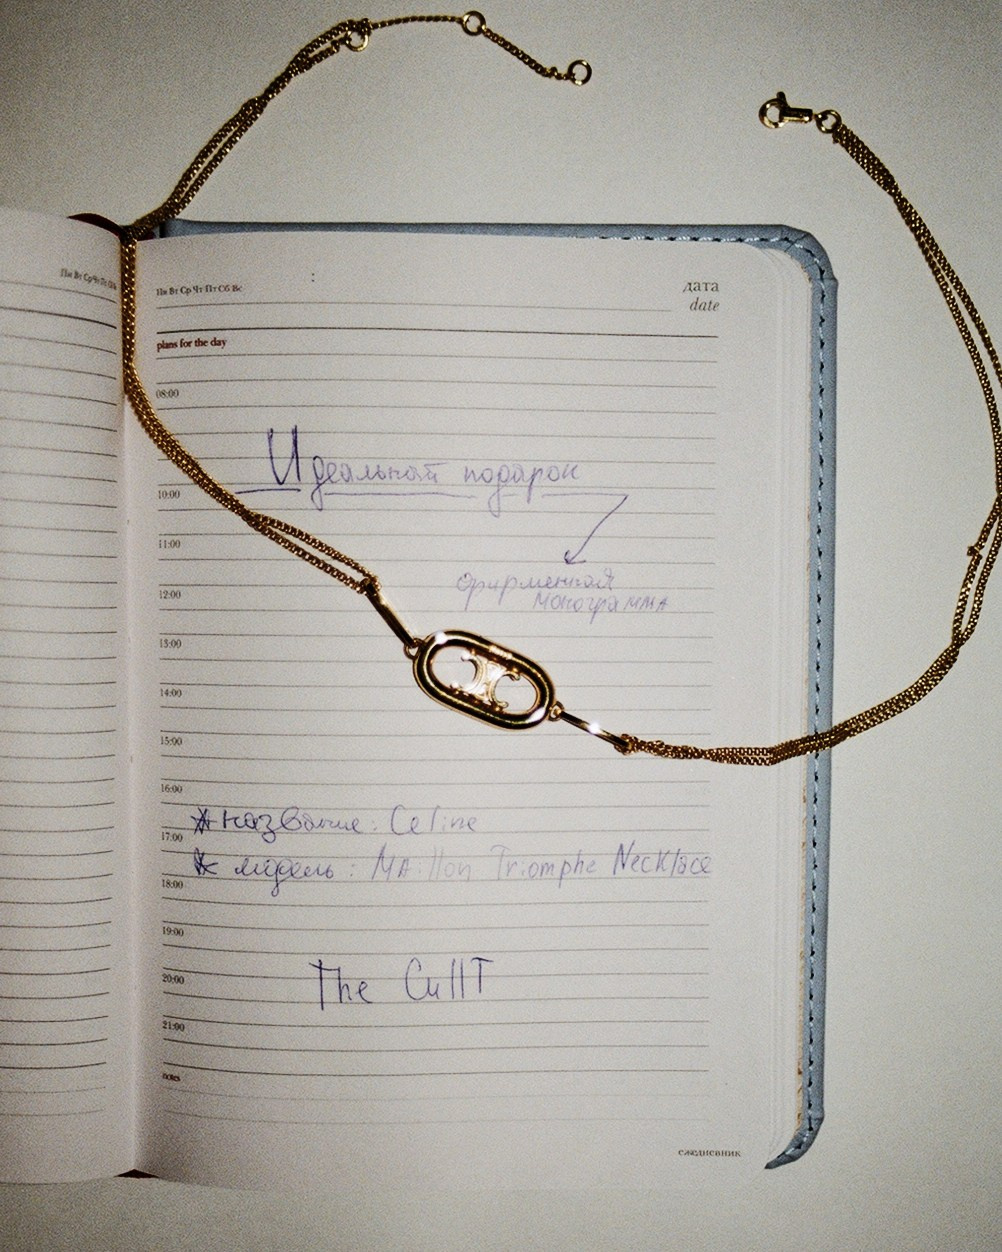 Пн Вт Ср Чт Пт Сб Вс
Пн Вт Ср Чт Пт Сб Вс
дата
date
plans for the day
08:00
Идеальный подарок
10:00
11:00
фирменная
12:00
монограмма
13:00
14:00
15:00
16:00
название: Celine
17:00
модель: Maillon Triomphe Necklace
18:00
19:00
The CullT
20:00
21:00
notes
ежедневник